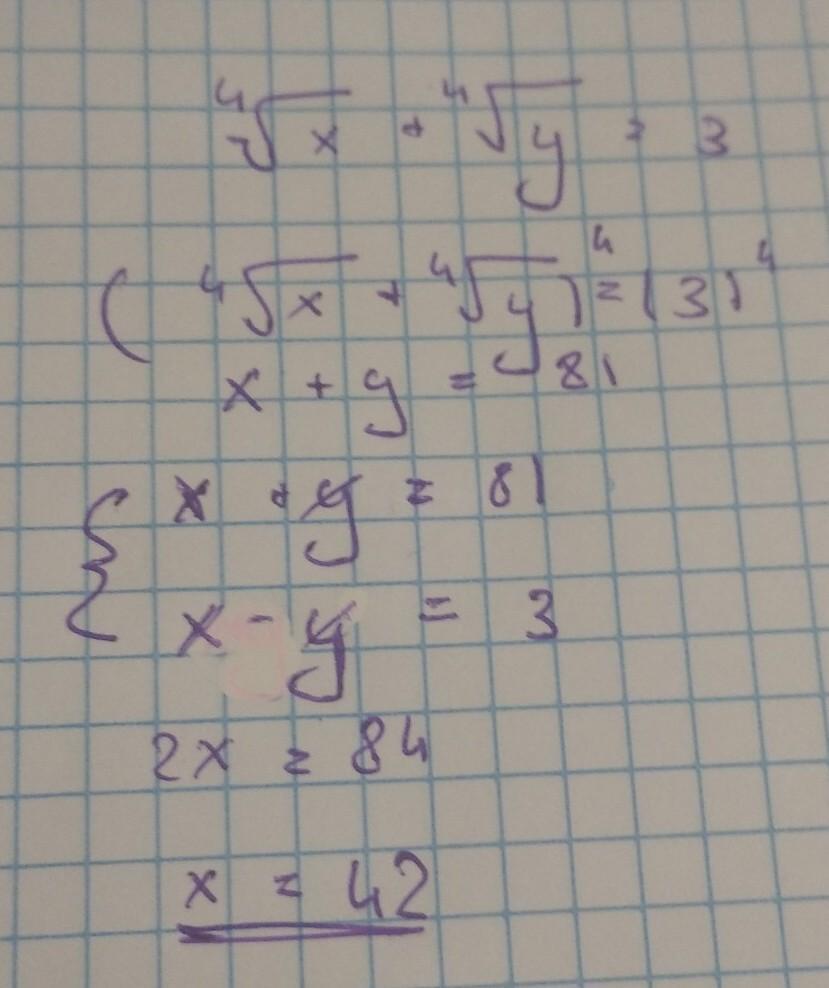 ⁴√x + ⁴√y = 3
(⁴√x + ⁴√y)⁴ = (3)⁴
x + y = 81
{ x + y = 81
x - y = 3
2x = 84
x = 42